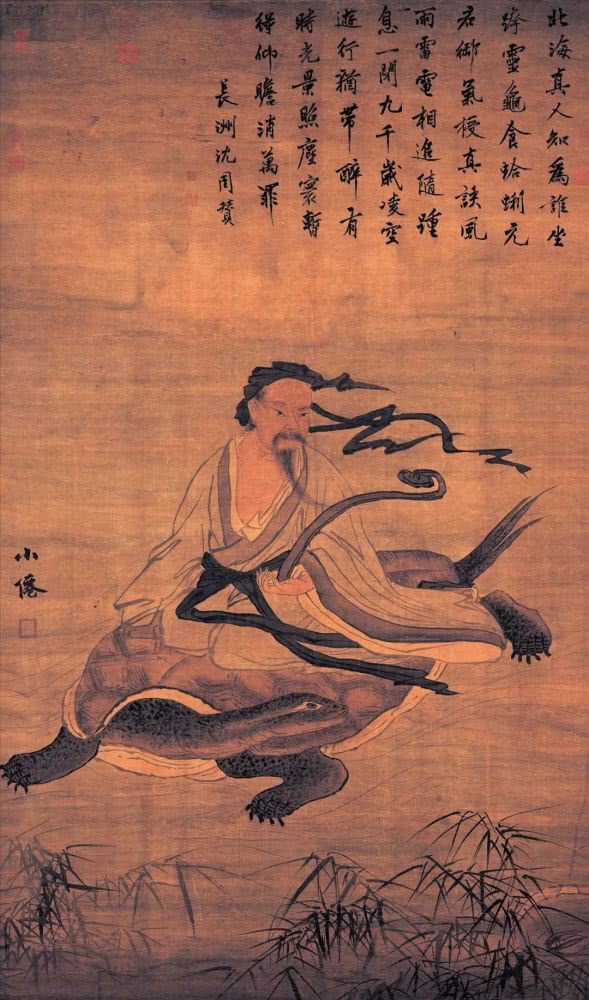 北海真人知為誰坐
跨靈龜食蛤蜊元
君御氣授真訣風
雨雷電相進隨踵
息一閉九千歲凌空
遊行猶帶醉有
時光景照塵寰暫
得仰瞻消萬罪
長洲沈周贊
小僊